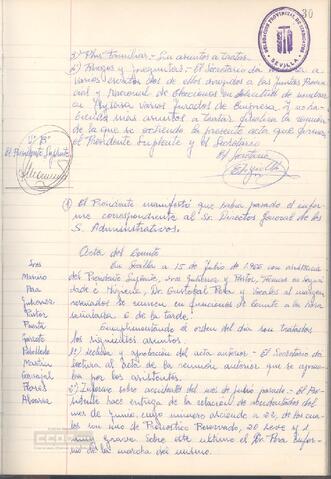 30
DELEGACION PROVINCIAL DE SINDICATOS
SEVILLA
5) Plus Familiar.- Sin asuntos a tratar.
6) Ruegos y preguntas.- El Secretario da lectura a
varios escritos de ellos dirigidos a las Juntas Provincial
y Nacional de Elecciones en solicitud de
varios Jurados de Empresa. Y no habiendo
más asuntos a tratar, finaliza la reunión
de la que se extiende la presente acta que firman
el Presidente Suplente y el Secretario
Vº Bº
El Presidente Suplente
El Secretario
El Presidente manifestó que había pasado el informe
correspondiente al Sr. Director General de los
S. Administrativos.
Acta del Comité
Sres
En Sevilla a 15 de Julio de 1966 con asistencia
Merino
del Presidente Suplente, Sres Gutierrez y Pastor, Técnicos en Seguridad
Pera
e Higiene, Dr. Cristobal Pera y Vocales al margen
Gutierrez
asociados se reunen en funciones de Comité a la hora
Pastor
señalada 6 de la tarde.
Cumplimentando el orden del día son tratados
los siguientes asuntos.
Rebolledo
1º) Lectura y aprobación del acta anterior.- El Secretario da
Martin
lectura al acta de la reunión anterior que es aprobada
Carvajal
por los asistentes.
Flores
2º) Informe sobre accidentes del mes de Junio pasado.- El Presidente
hace entrega de la relación de accidentados del
mes de Junio, cuyo número asciende a 22, de los cuales
son uno de Pronostico Reservado, 20 leve y 1
muy grave. Sobre este último el Dr. Pera informó
de la marcha del mismo.